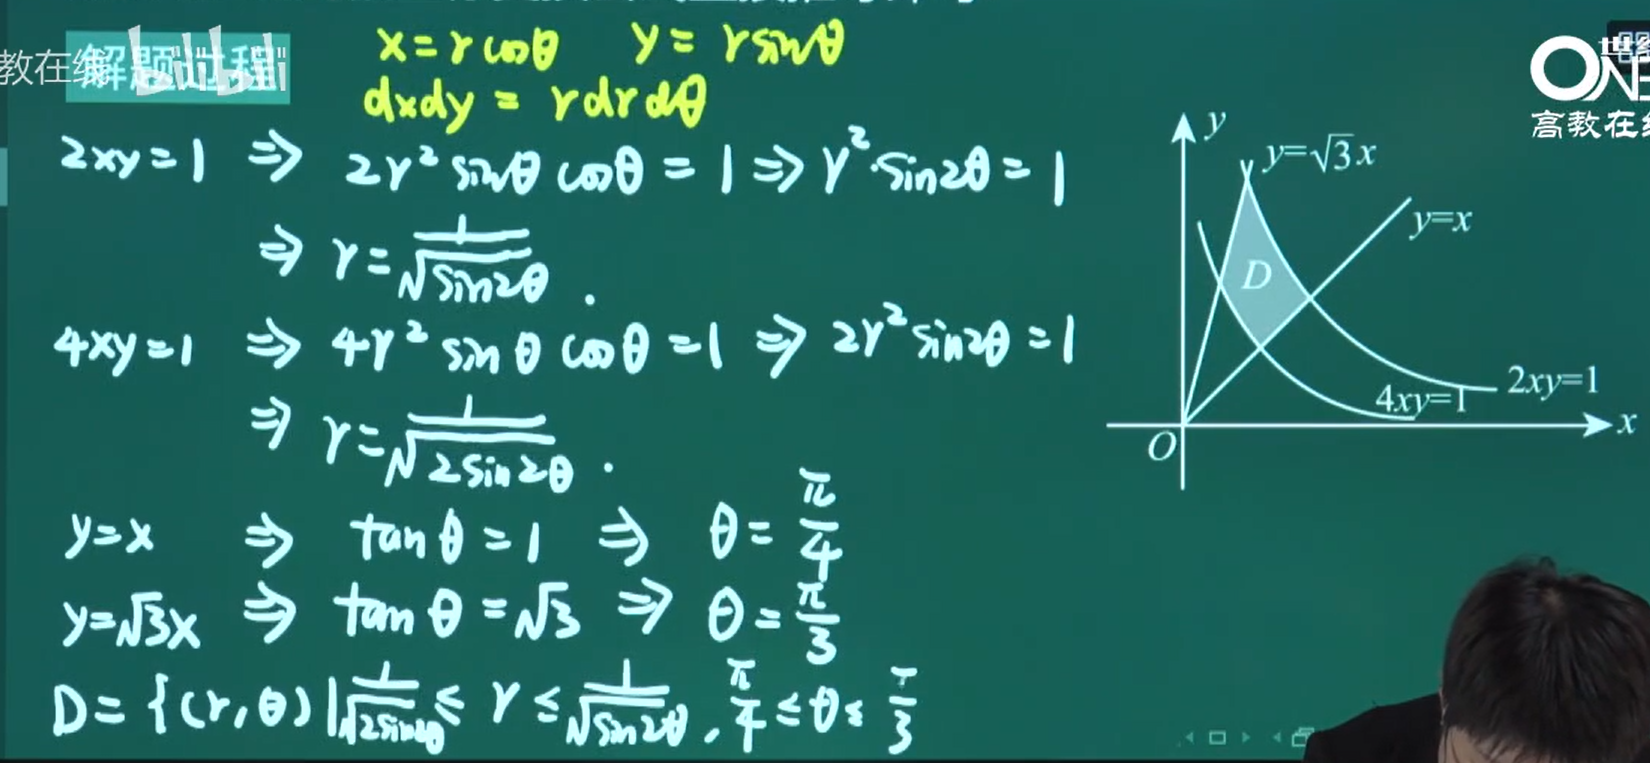 教在线
解题过程
bilibili
x=rcosθ y=rsinθ
dxdy=rdrdθ
2xy=1 ⇒ 2r²sinθcosθ=1⇒r²·sin2θ=1
⇒ r=1/√sin2θ.
4xy=1 ⇒ 4r²sinθcosθ=1 ⇒ 2r²sin2θ=1
⇒ r=1/√2sin2θ.
y=x ⇒ tanθ=1 ⇒ θ=π/4
y=√3x ⇒ tanθ=√3 ⇒ θ=π/3
D={(r,θ)|1/√2sin2θ≤r≤1/√sin2θ,π/4≤θ≤π/3
ONE
高教在
y
y=√3x
y=x
D
2xy=1
4xy=1
O
x